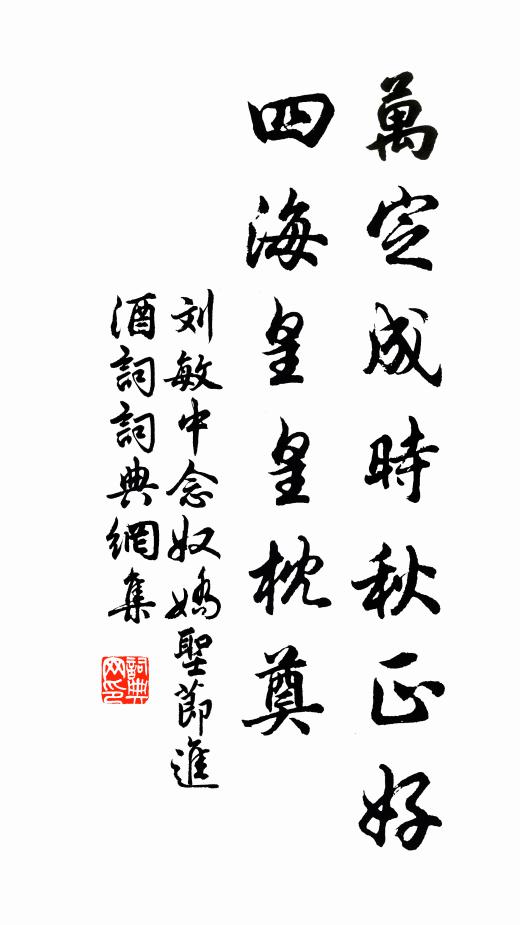 萬定成時秋正好
四海皇皇枕奠
刘敏中念奴嬌聖節進
酒詞詞典網集
詞典網印